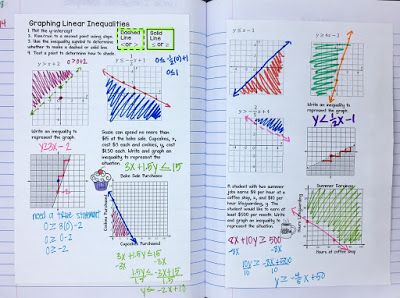 Graphing Linear Inequalities
1. Plot the y-intercept
2. Run/rise to a second point using slope.
3. Use the inequality symbol to determine
whether to make a dashed or solid line.
4. Test a point to determine how to shade.
Dashed
Line
< or >
Solid
Line
≤ or ≥
y > x + 2
0 > 0+2
0≤ -½(0)+1
0≤1
Write an inequality to
represent the graph.
y≥3x-2
need a true statement
0 ≥ 3(0)-2
0 ≥ 0-2
0 ≥ -2
Susie can spend no more than
$15 at the bake sale. Cupcakes, x,
cost $3 each and cookies, y, cost
$1.50 each. Write and graph an
inequality to represent the
situation.
3x+1.5y ≤ 15
Bake Sale Purchases
Cookies Purchased
Cupcakes Purchased
3x+1.5y≤15
-3x -3x
1.5y ≤ -3x+15
1.5 1.5
y ≤ -2x+10
y ≥ 4x - 1
Write an inequality to
represent the graph.
y < ½x-1
A student with two summer
jobs earns $8 per hour at a
coffee shop, x, and $10 per
hour lifeguarding, y. The
student would like to earn at
least $500 per month. Write an
inequality to represent the
situation.
8x+10y ≥ 500
-8x -8x
10y ≥ -8x+500
10 10
y ≥ -⅘x+50
Summer Earnings
Hours at coffee shop